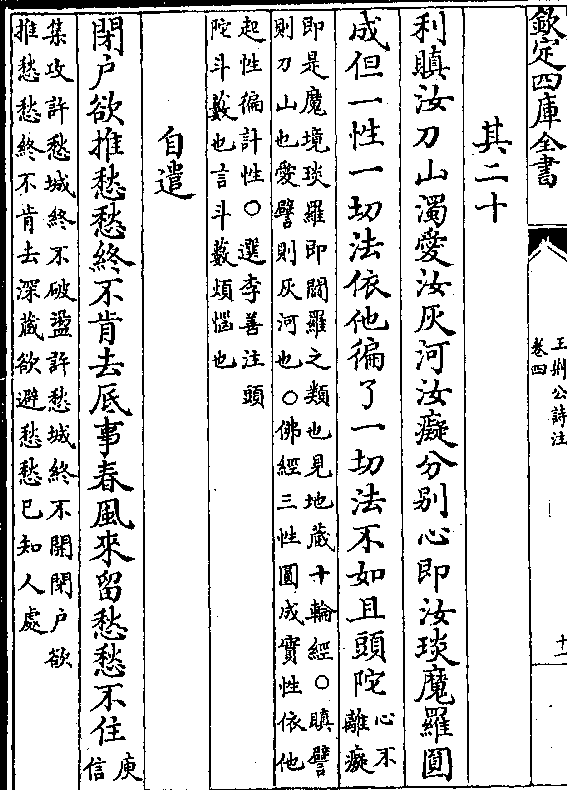 欽定四庫全書
王荆公詩注
卷四
十一
其二十
利瞋汝刀山濁愛汝灰河汝癡分別心即汝琰魔羅圓
成但一性一切法依他徧了一切法不如且頭陀
心不
離癡
即是魔境琰羅即閻羅之類也見地藏十輪經○瞋譬
則刀山也愛譬則灰河也○佛經三性圓成實性依他
起性徧計性○選李善注頭
陀斗藪也言斗藪煩惱也
自遣
閉户欲推愁愁終不肯去底事春風來留愁愁不住
庾
信
集攻許愁城終不破盪許愁城終不開閉户欲
推愁愁終不肯去深藏欲避愁愁已知人處